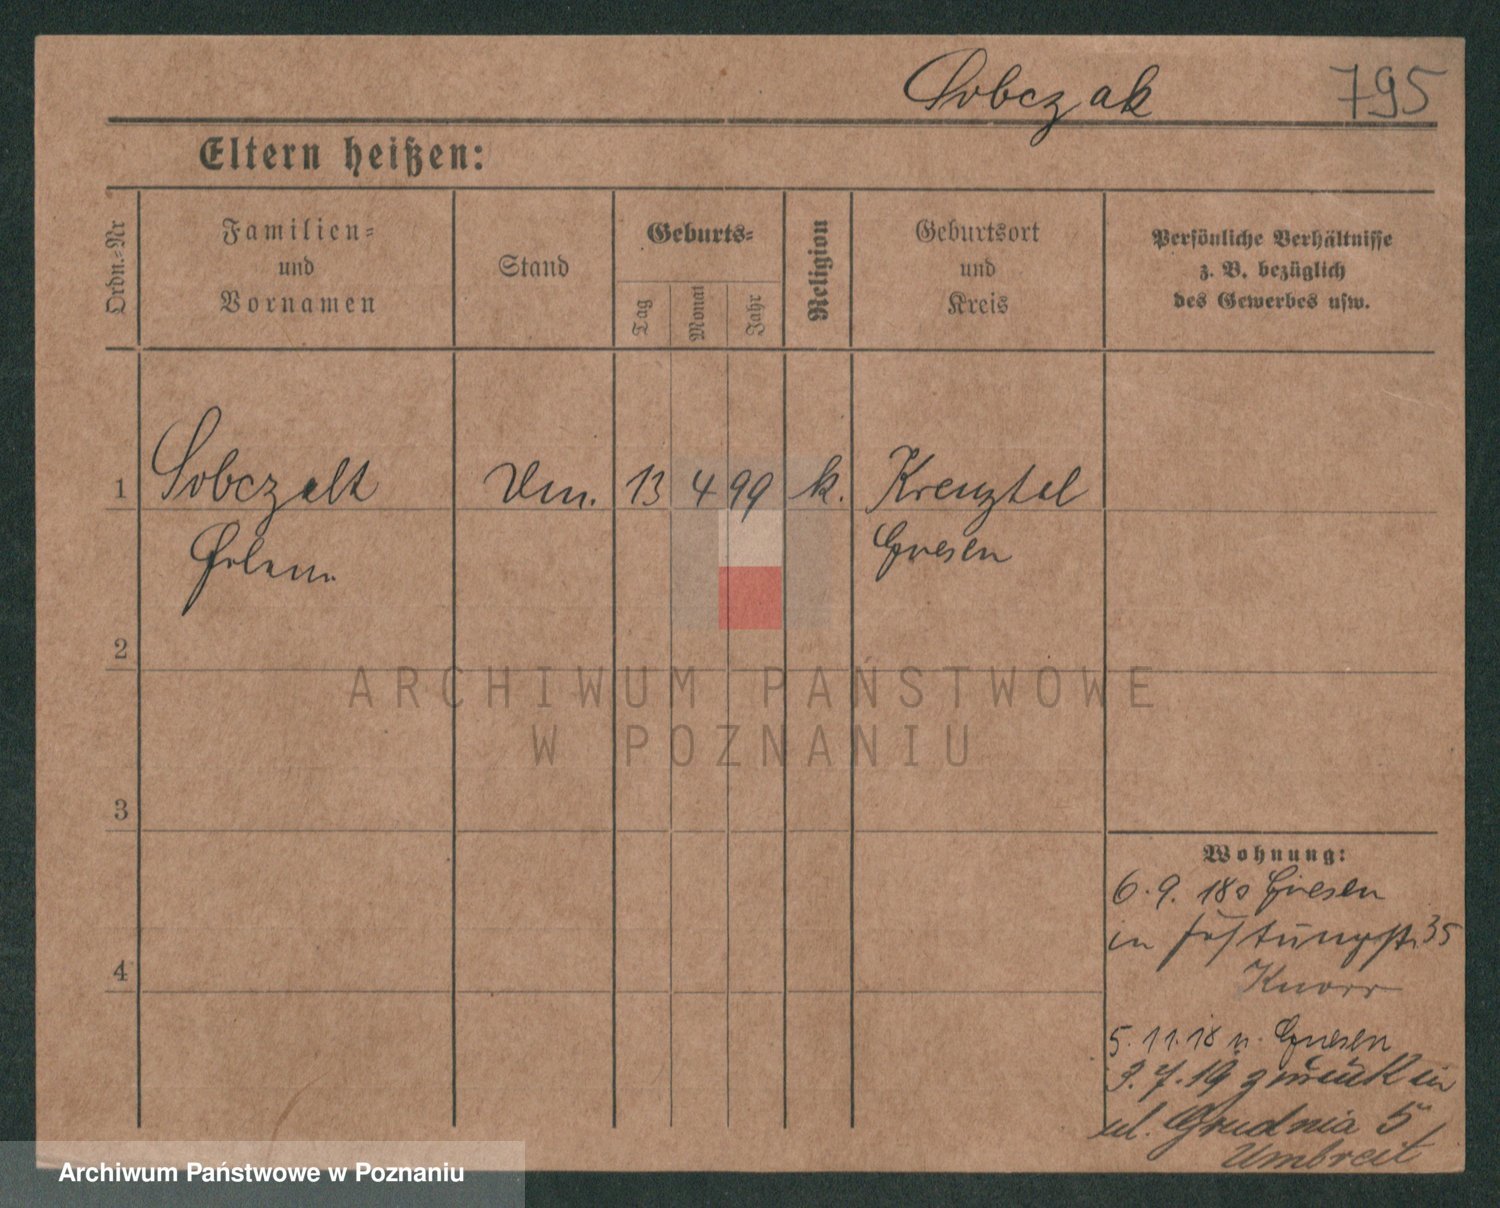 Sobczak 795
Eltern heißen:
Ordn.-Nr
Familien-
und
Vornamen
Stand
Geburts-
Tag
Monat
Jahr
Religion
Geburtsort
und
Kreis
Persönliche Verhältnisse
z. B. bezüglich
des Gewerbes usw.
1 Sobczak 13 4 99 k. Kreuztal
Gnesen
2
3
4
Wohnung:
6. 9. 18 Gnesen
in 35
Knorr
5. 11. 18 n. Gnesen
3. 7. 19 zurück in
ul. Grudnia 5
Umbreit
ARCHIWUM PAŃSTWOWE
W POZNANIU
Archiwum Państwowe w Poznaniu